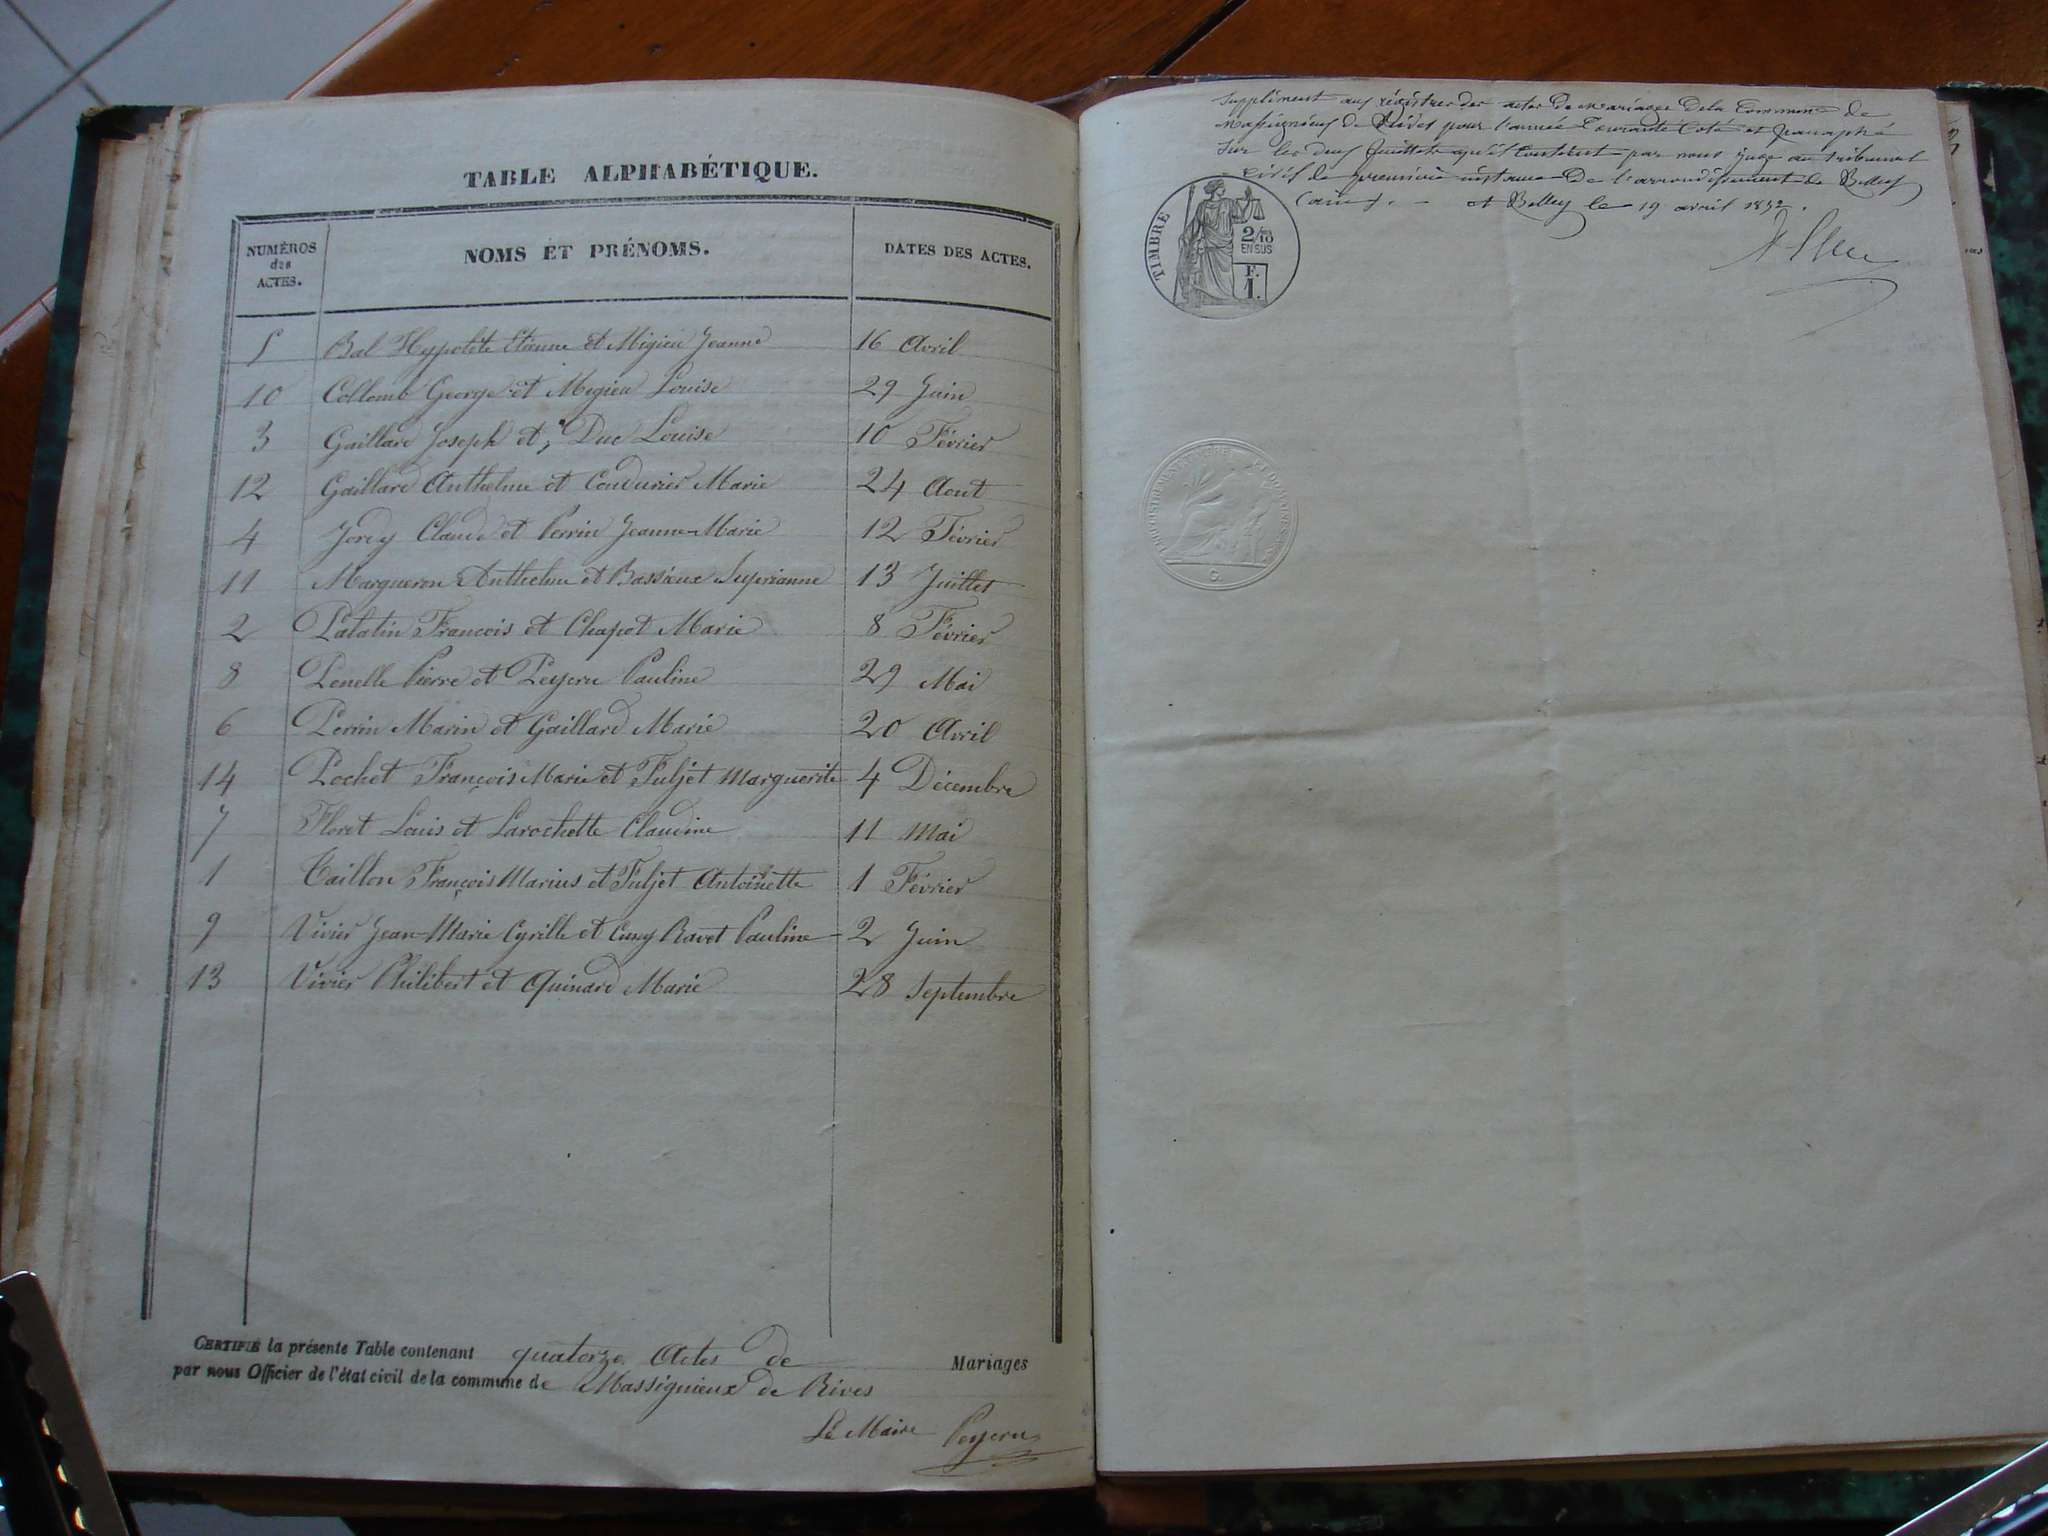 TABLE ALPHABÉTIQUE.
NUMÉROS des ACTES.
NOMS ET PRÉNOMS.
DATES DES ACTES.
5 Bal Hypolite Etienne et Migieu Jeanne 16 Avril
10 Collomb George et Megieu Louise 29 Juin
3 Gaillard Joseph et Duc Louise 10 Février
12 Gaillard Anthelme et Condurier Marie 24 Aout
4 Jordy Claude et Perrin Jeanne-Marie 12 Février
11 Margueron Anthelme et Bassieux 13 Juillet
2 Palatin François et Chapot Marie 8 Février
8 Penelle Pierre et Peyeru Pauline 29 Mai
6 Perrin Marin et Gaillard Marie 20 Avril
14 Pochet François Marie et Fuljet Marguerite 4 Décembre
7 Floret Louis et Larochette Claudine 11 Mai
1 Taillon François Marius et Fuljet Antoinette 1 Février
9 Vivier Jean-Marie Cyrille et Cuzy Ravet Pauline 2 Juin
13 Vivier Philibert et Quinard Marie 28 Septembre
CERTIFIÉ la présente Table contenant quatorze Actes de Mariages
par nous Officier de l'état civil de la commune de Massignieux de Rives
Le Maire Peyeru
Supplément aux régistres des actes de mariage de la Commune de
Massignieux de Rives pour l'année Courante Coté et paraphé
sur les deux feuillets qu'il contient par nous juge au tribunal
civil de première instance de l'arrondissement de Belley
(ain). - A Belley le 19 avril 1872.
TIMBRE
2/10
EN SUS
F.
1.